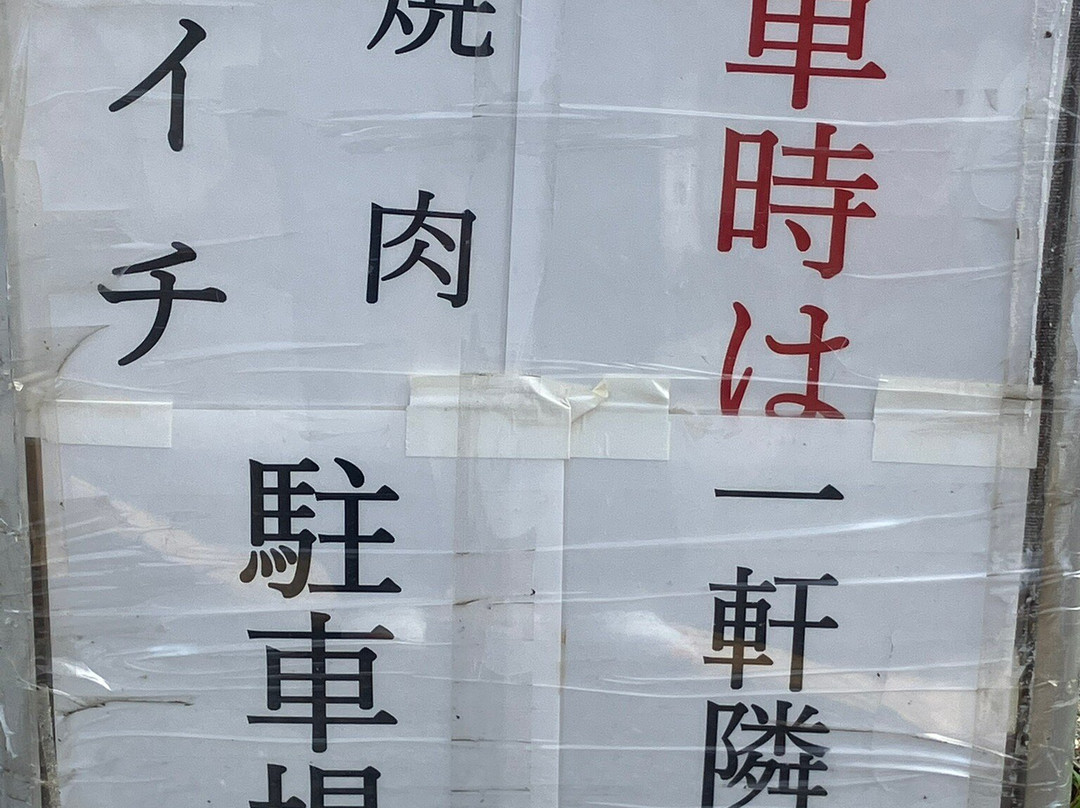 車時は
一軒隣
焼肉
イチ
駐車場